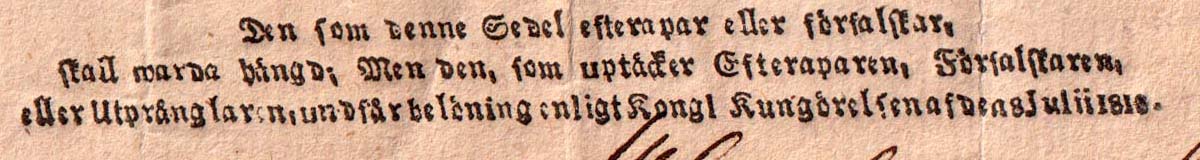 Den som denne Sedel efterapar eller förfalskar,
skall warda hängd; Men den, som uptäcker Efteraparen, Förfalskaren,
eller Utprånglaren, undfår belöning enligt Kongl Kungörelsen af den 28 Julii 1818.